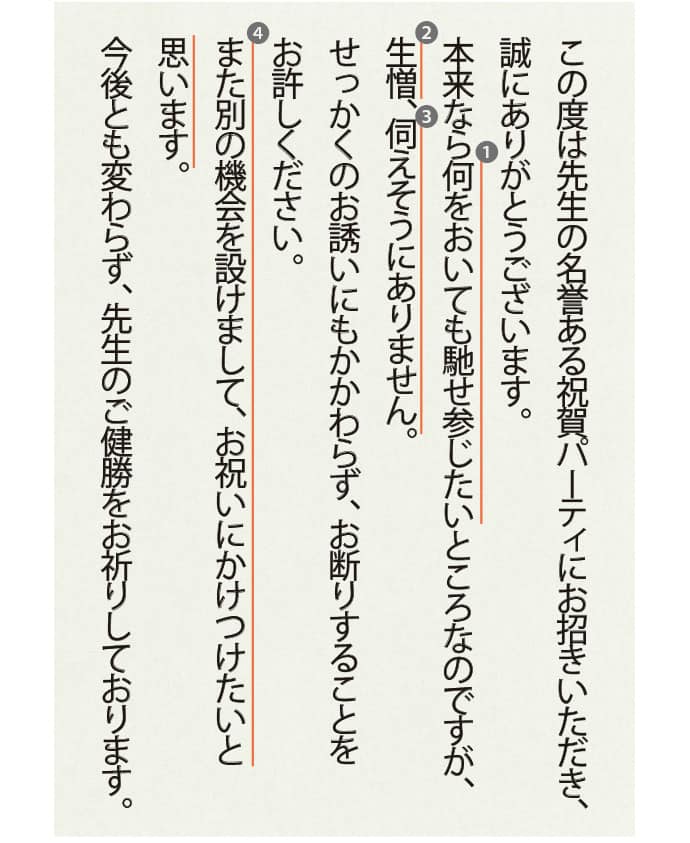 この度は先生の名誉ある祝賀パーティにお招きいただき、
誠にありがとうございます。
本来なら何をおいても馳せ参じたいところなのですが、
生憎、伺えそうにありません。
せっかくのお誘いにもかかわらず、お断りすることを
お許しください。
また別の機会を設けまして、お祝いにかけつけたいと
思います。
今後とも変わらず、先生のご健勝をお祈りしております。
1
2
3
4